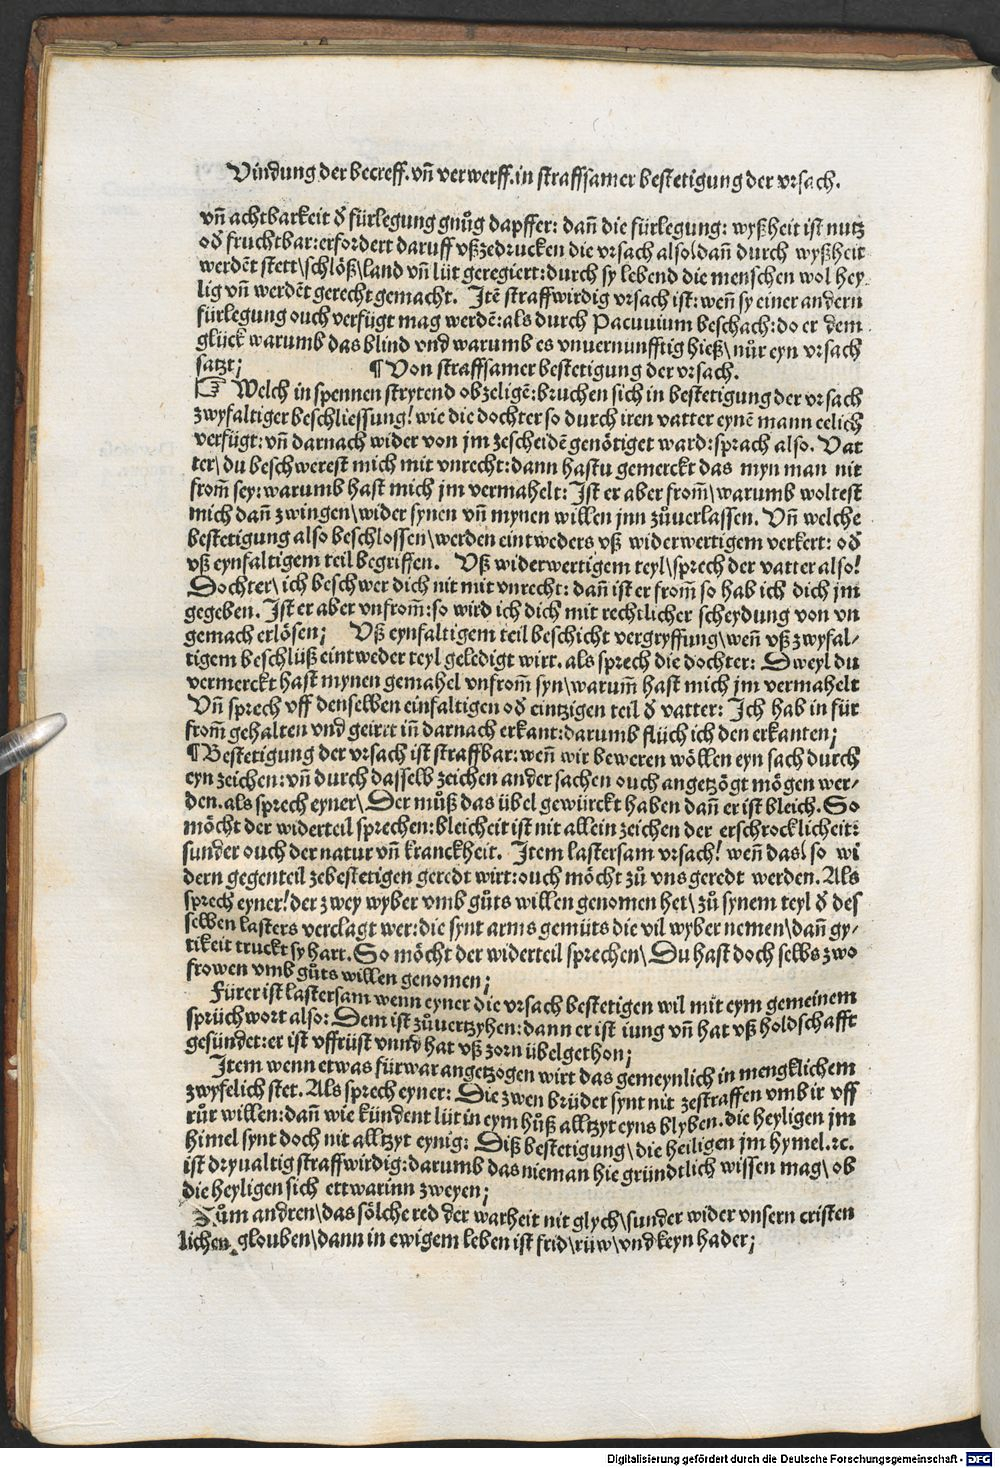 Vindung der betreff. vñ verwerff. in straffsamer bestetigung der vrsach.
vñ achtbarkeit đ fürlegung gnůg dapffer: dañ die fürlegung: wyßheit ist nutz
ođ fruchtbar: erfordert daruff vßzedrucken die vrsach also\ dañ durch wyßheit
werdēt stett\ schlöß\ land vñ lüt geregiert: durch sy lebend die menschen wol hey
lig vñ werdēt gerecht gemacht. Itē straffwirdig vrsach ist: weñ sy einer andern
fürlegung ouch verfügt mag werdē: als durch Pacuuium beschach: do er dem
glück warumb das blind vnd warumb es vnuernunfftig hieß\ nůr eyn vrsach
satzt; ¶ Von straffsamer bestetigung der vrsach.
☞ Welch in spennen strytend obzeligē: bruchen sich in bestetigung der vrsach
zwyfaltiger beschliessung! wie die dochter so durch iren vatter eynē mann eelich
verfügt: vñ darnach wider von jm zescheidē genötiget ward: sprach also. Vat
ter\ du beschwerest mich mit vnrecht: dann hastu gemerckt das myn man nit
from̄ sey: warumb hast mich jm vermahelt: Ist er aber from̄\ warumb woltest
mich dañ zwingen\ wider synen vñ mynen willen jnn zůuerlassen. Vñ welche
bestetigung also beschlossen\ werden eintweders vß widerwertigem verkert: ođ
vß eynfaltigem teil begriffen. Vß widerwertigem teyl\ sprech der vatter also!
Dochter\ ich beschwer dich nit mit vnrecht: dañ ist er from̄ so hab ich dich jm
gegeben. Ist er aber vnfrom̄: so wird ich dich mit rechtlicher scheydung von vn
gemach erlösen; Vß eynfaltigem teil beschicht vergryffung\ weñ vß zwyfal-
tigem beschlüß eintweder teyl geledigt wirt. als sprech die dochter: Dweyl du
vermerckt hast mynen gemahel vnfrom̄ syn\ warum̄ hast mich jm vermahelt
Vñ sprech vff denselben einfaltigen ođ eintzigen teil đ vatter: Ich hab in für
from̄ gehalten vnd geirrt iñ darnach erkant: darumb flüch ich den erkanten;
¶ Bestetigung der vrsach ist straffbar: weñ wir beweren wöllen eyn sach durch
eyn zeichen: vñ durch dasselb zeichen ander sachen ouch angetzögt mögen wer-
den. als sprech eyner\ Der můß das übel gewürckt haben dañ er ist bleich. So
möcht der widerteil sprechen: bleicheit ist nit allein zeichen der erschrocklicheit:
sunder ouch der natur vñ kranckheit. Item lastersam vrsach! weñ das\ so wi
dern gegenteil zebestetigen geredt wirt: ouch möcht zů vns geredt werden. Als
sprech eyner! der zwey wyber vmb gůts willen genomen het\ zů synem teyl đ des
selben lasters verclagt wer: die synt arms gemüts die vil wyber nemen\ dañ gy-
tikeit truckt sy hart. So möcht der widerteil sprechen\ Du hast doch selbs zwo
frowen vmb gůts willen genomen;
Fürer ist lastersam wenn eyner die vrsach bestetigen wil mit eym gemeinem
sprüchwort also: Dem ist zůuertzyhen: dann er ist iung vñ hat vß holdschafft
gesündet: er ist vffrüst vnnd hat vß zorn übelgethon;
Item wenn etwas fürwar angetzogen wirt das gemeynlich in mengklichem
zwyfelich stet. Als sprech eyner: Die zwen brüder synt nit zestraffen vmb ir vff
růr willen: dañ wie kündent lüt in eym hůß alltzyt eyns blyben. die heyligen jm
himel synt doch nit alltzyt eynig: Diß bestetigung\ die heiligen jm hymel. ꝛc.
ist dryualtig straffwirdig: darumb das nieman hie gründtlich wissen mag\ ob
die heyligen sich ettwarinn zweyen;
Zům andren\ das sölche red der warheit nit glych\ sunder wider vnsern cristen
lichen glouben\ dann in ewigem leben ist frid\ rüw\ vnd keyn hader;
Digitalisierung gefördert durch die Deutsche Forschungsgemeinschaft - DFG